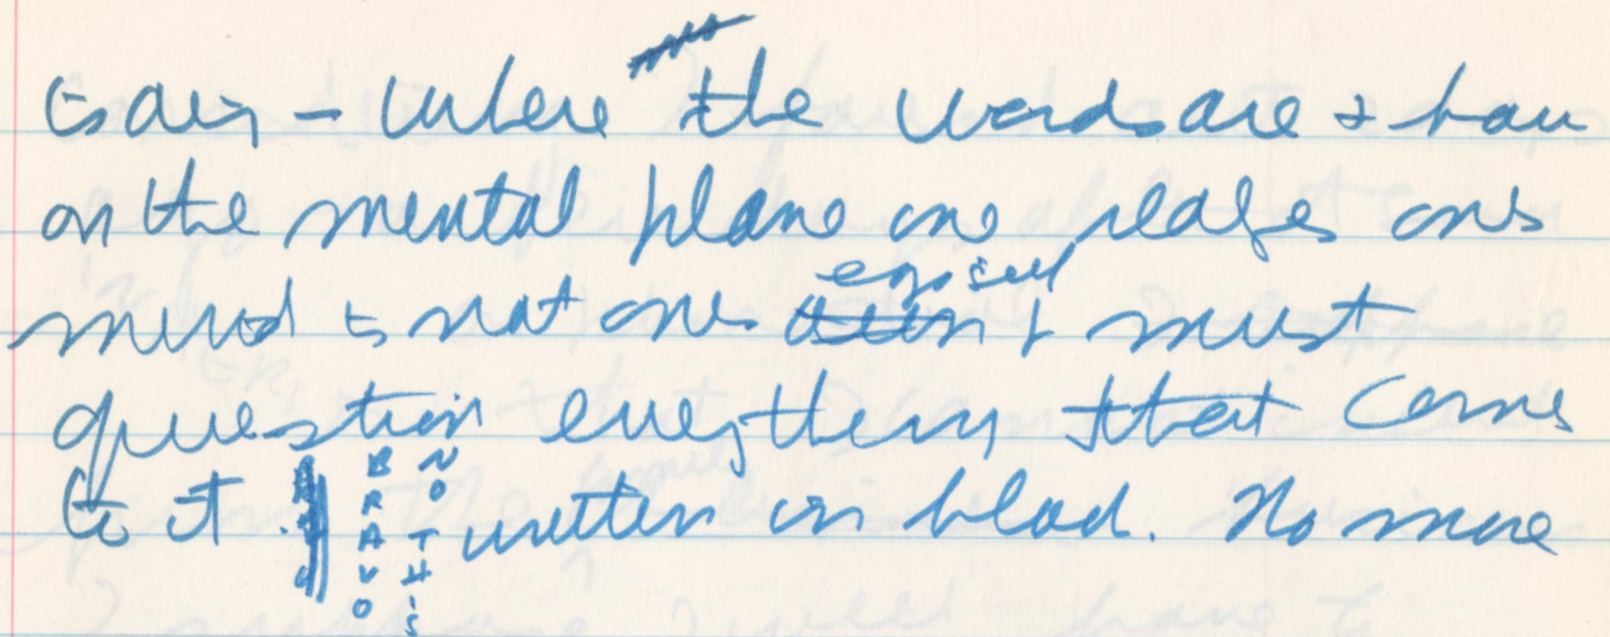 is airy - where the words are & how
on the mental plane one places ones
mind is not ones & must
question everything that comes
to it. BRAVO NO THIS written in blood. No more